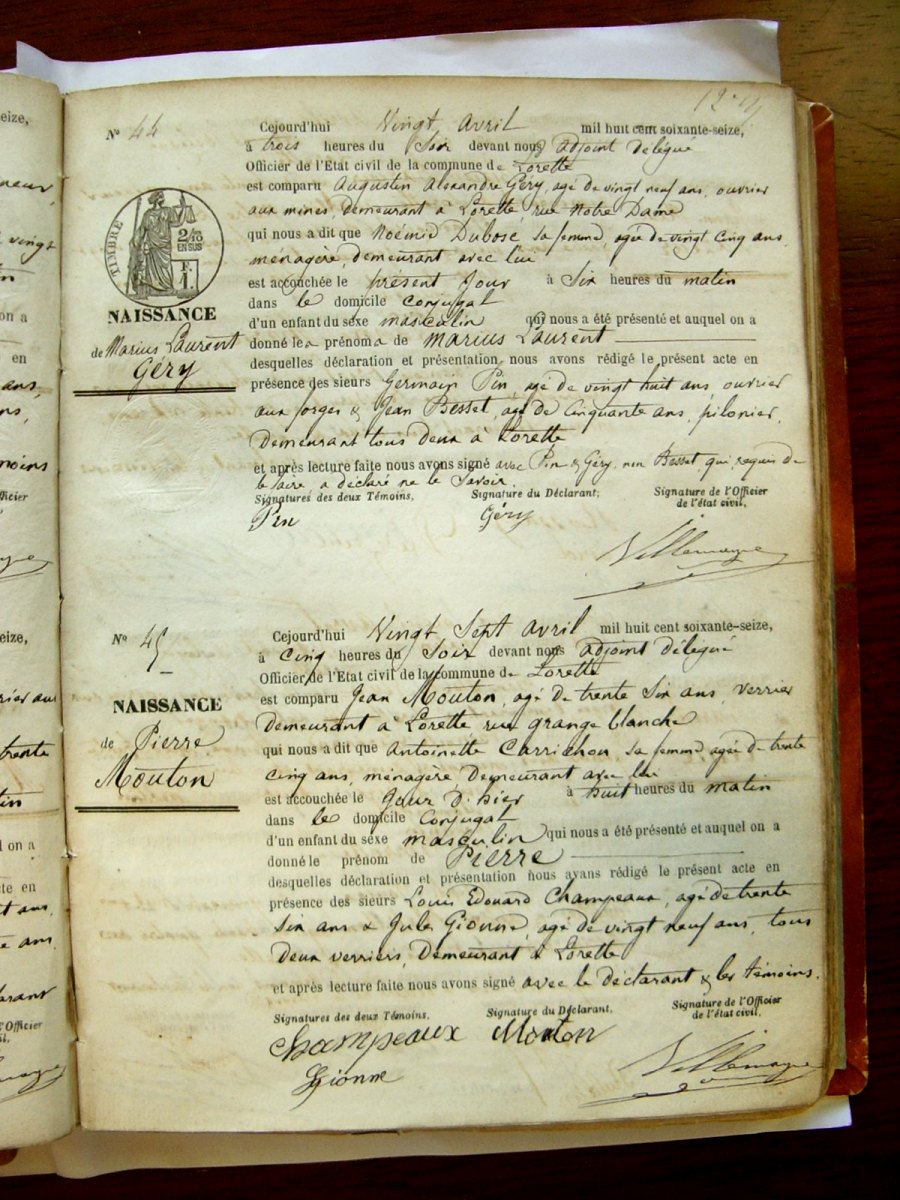 12
N° 44
TIMBRE
2/10
EN SUS
F.
1.
NAISSANCE
de Marius Laurent
Géry
Cejourd'hui Vingt Avril mil huit cent soixante-seize,
à trois heures du Soir devant nous adjoint délégué
Officier de l'Etat civil de la commune de Lorette
est comparu Augustin Alexandre Géry, agé de vingt neuf ans, ouvrier
aux mines, demeurant à Lorette, rue Notre Dame
qui nous a dit que Noémie Dubosc sa femme, agée de vingt cinq ans,
ménagère, demeurant avec lui
est accouchée le présent Jour à Six heures du matin
dans le domicile conjugal
d'un enfant du sexe masculin qui nous a été présenté et auquel on a
donné les prénoms de Marius Laurent
desquelles déclaration et présentation nous avons rédigé le présent acte en
présence des sieurs Germain Pin agé de vingt huit ans ouvrier
aux forges & Jean Besset, agé de cinquante ans, pilonier,
Demeurant tous deux à Lorette
et après lecture faite nous avons signé avec Pin & Géry, non Besset qui requis de
le faire a déclaré ne le Savoir.
Signatures des deux Témoins, Signature du Déclarant, Signature de l'Officier
de l'état civil,
Pin Géry
Villemagne
N° 45
NAISSANCE
de Pierre
Mouton
Cejourd'hui Vingt Sept Avril mil huit cent soixante-seize,
à cinq heures du Soir devant nous adjoint délégué
Officier de l'Etat civil de la commune de Lorette
est comparu Jean Mouton, agé de trente Six ans, verrier
demeurant à Lorette rue grange blanche
qui nous a dit que Antoinette Carrichon sa femme agée de trente
cinq ans, ménagère Demeurant avec lui
est accouchée le Jour d'hier à huit heures du matin
dans le domicile conjugal
d'un enfant du sexe masculin qui nous a été présenté et auquel on a
donné le prénom de Pierre
desquelles déclaration et présentation nous avans rédigé le présent acte en
présence des sieurs Louis Edouard Champeaux, agé de trente
Six ans & Jules Gionne, agé de vingt neuf ans, tous
Deux verriers, Demeurant à Lorette
et après lecture faite nous avons signé avec le déclarant & les témoins.
Signatures des deux Témoins, Signature du Déclarant, Signature de l'Officier
de l'état civil,
Champeaux Mouton
Gionne
Villemagne